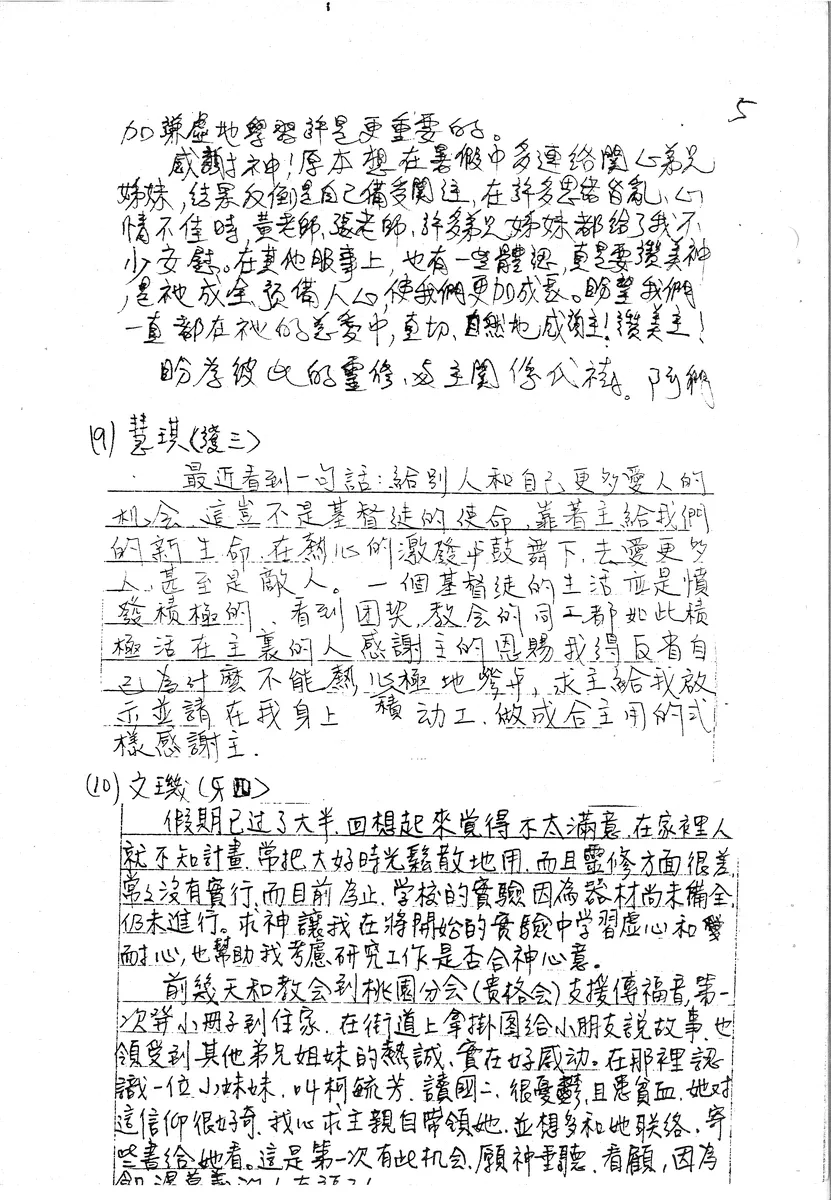 5
加謙虛地學習許是更重要的。
感謝神!原本想在暑假中多連絡關心弟兄
姊妹,結果反倒是自己備受關注,在許多思緒皆亂、心
情不佳時黃老師、張老師、許多弟兄姊妹都給了我不
少安慰。在其他服事上,也有一些體認,真是要讚美神
,是祂成全預備人心,使我們更加成長。盼望我們
一直都在祂的慈愛中,直切、自然地感謝主!讚美主!
盼為彼此的靈修、與主關係代禱。阿
(9) 慧琪(發三)
最近看到一句話:給別人和自己更多愛人的
机会,這豈不是基督徒的使命,靠著主給我們
的新生命.在熱心的激發与鼓舞下.去愛更多
人,甚至是敵人。一個基督徒的生活应是憤
發積極的、看到团契,教会的同工都如此積
極活在主裏的人感謝主的恩賜我得反省自
己為什麼不能熱心積極地參与,求主給我啟
示並請在我身上动工.做成合主用的式
樣感謝主.
(10) 文璣(牙四)
假期已过了大半.回想起來覺得不太滿意.在家裡人
就不知計畫.常把大好時光鬆散地用.而且靈修方面很差,
常々沒有實行.而目前為止.学校的實驗因為器材尚未備全,
仍未進行。求神讓我在將開始的實驗中学習虛心和
耐心,也幫助我考慮研究工作是否合神心意。
前幾天和教会到桃園分会(貴格会)支援傳福音,第一
次發小冊子到住家.在街道上拿掛图給小朋友説故事.也
領受到其他弟兄姐妹的熱誠.實在好感动。在那裡認
識一位小妹妹.叫柯毓芳.讀國二.很憂鬱,且患貧血.她对
這信仰很好奇.我心求主親自帶領她.並想多和她联絡.寄
些書給她看。這是第一次有此机会.願神垂聽.看顧,因為